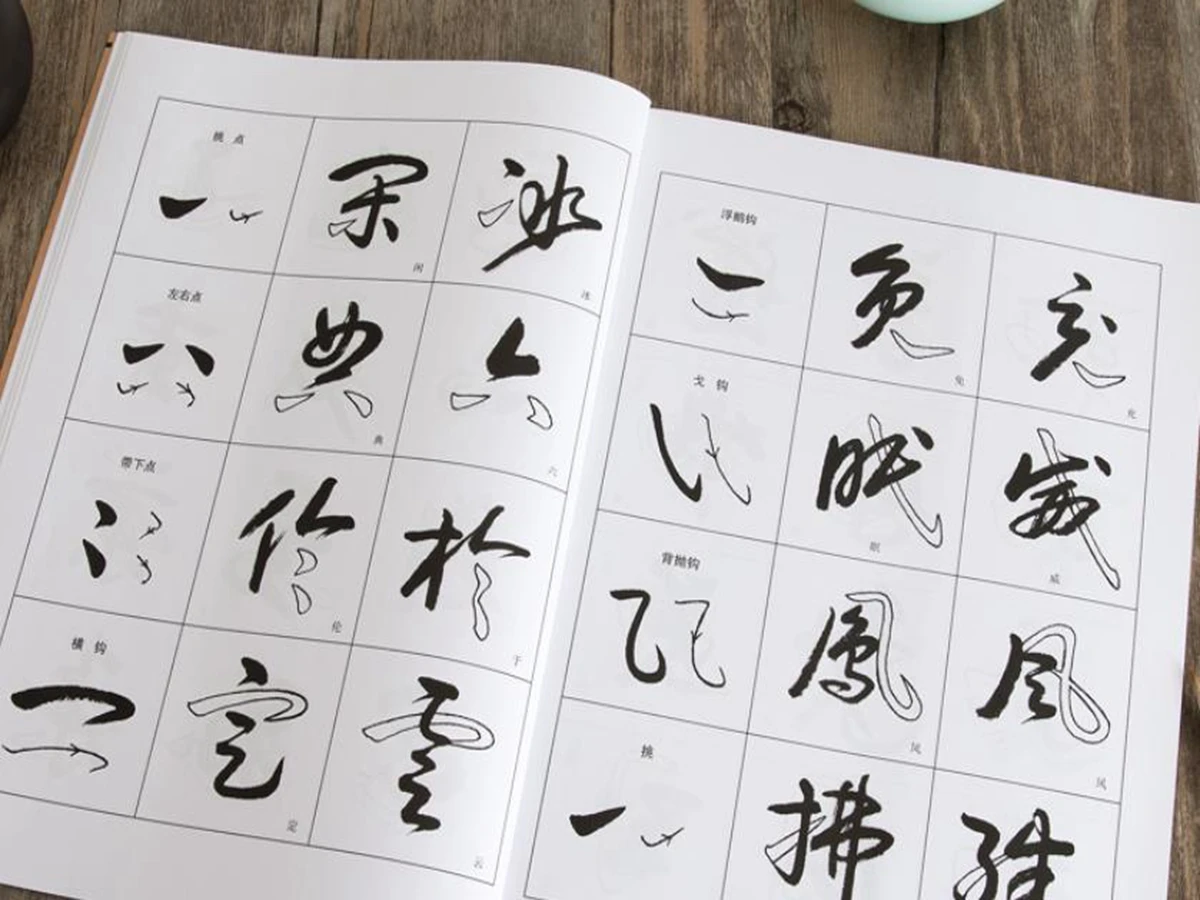 挑 点
闲
冰
左右点
典
六
带下点
伦
于
横 钩
定
云
浮鹅钩
免
充
戈 钩
眠
威
背抛钩
凤
风
挑
拂